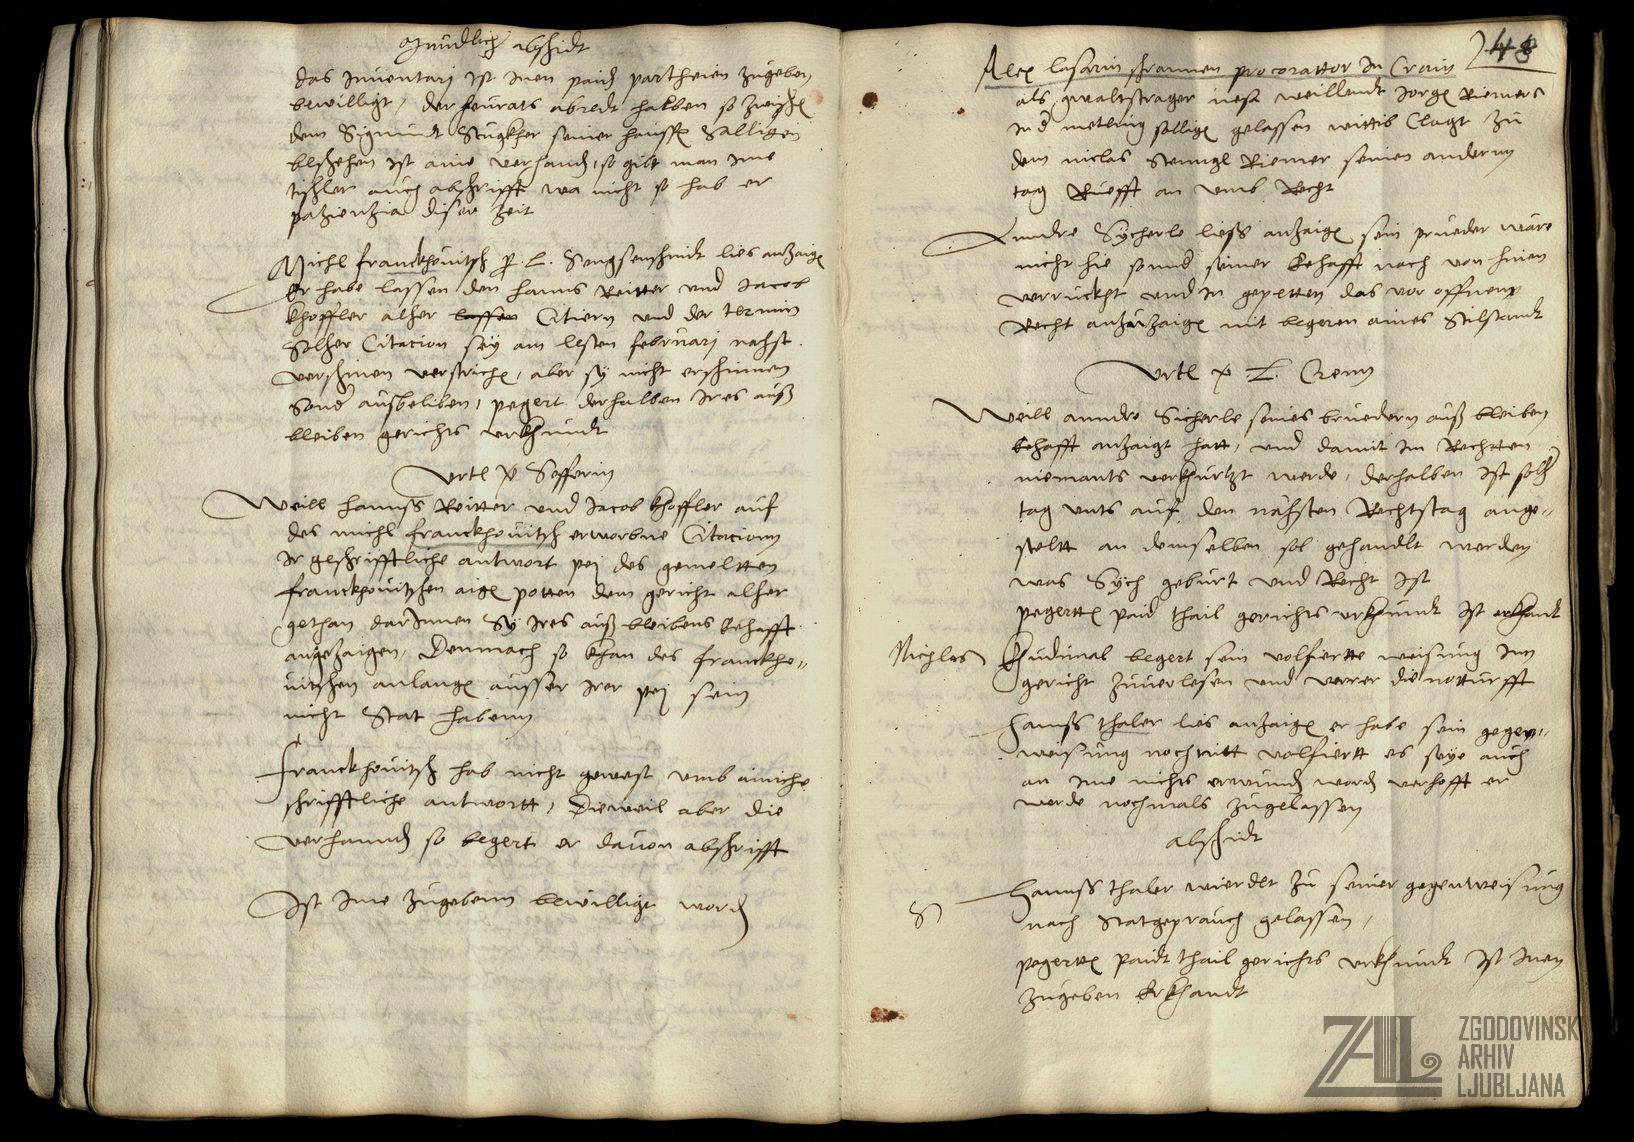 Mundlich abschidt
das Inventarj ist Inen paiden partheien zugeben
bewilligt, der heurats abredt halben so zwischen
dem Sigmundt Stugkher seiner hausfr Salligen
beschehen ist aine verhanden, so gibt man Ime
tischler auch abschrifft wa nicht so hab er
patzientzia diser zeit
Michl franckhouitsch p. L. Sengsenschmidt lies anzaigen
Er habe lassen den hanns Reitter und Jacob
khoffler alher lassen Citiern und der termin
Solher Citacion sey am lesten februarj nachst
verschinen verstrichen, aber sy nicht erschinnen
Sonder ausbeliben, pegert derhalben Ires auß
bleiben gerichts urkhundt
Urtl p Sefferin
Weill hannß Reitter und Jacob khoffler auf
des michl franckhouitsch erworbne Citacionn
Ir geschrifftliche antwort pej des gemeltten
franckhouitschen aigen potten dem gericht alher
gethan darInnen Sy Ires auß bleibens Ehafft
angezaigen, Demnach so khan des franckho-
uitschen anlangen ausser Irer pej sein
nicht Stat habenn
Franckhouitsch hab nicht gewest umb ainiche
schrifftliche antwortt, Dieweil aber die
verhannden so begert er dauon abschrifft
Ist Ime zugebenn bewilligt worden
48
Alex lasarin schrannen procorattor In Crain
als gwaltstrager weillendt Jorgen Riemers
In der metling selligen gelassen wittib Clagt zu
dem niclas Riemer seinen anderm
tag Ruefft an umb Recht
Anndre Sycherle liess anzaigen sein prueder ware
nicht hie sonnder seiner Ehafft nach von hinen
verruckht und In gepetten das vor offnem
Recht anzuzaigen mit begeren aines Stilstandt
Urtl p L. Crenn
Weill anndre Sicherle seines bruedern auß bleiben
behafft anzaigt hatt, und damit Im Rechtten
niemants verkhurtzt werde, derhalben ist solher
tag unts auf den nahsten Rechtstag ange-
steltt an demselben sol gehandlt werden
was Sych geburt und Recht Ist
pegertten paid thail gerichts urkhundt Ist erkhant
Nichlas Khudinal begert sein volfiertte weisung Inn
gericht zuuerlesen und verrer die notturfft
Hannß thaler lies anzaigen er habe sein gegen-
weisung noch nitt volfiertt es seye auch
an Ime nichts erwunden worden verhofft er
werde nochmals zugelassen
abschidt
Hannss thaler wierdet zu seiner gegenweisung
nach Statgeprauch gelassen,
pegertten paidt thail gerichts urkhundt Ist Inen
zugeben Erkhandt
ZAL ZGODOVINSKI
ARHIV
LJUBLJANA